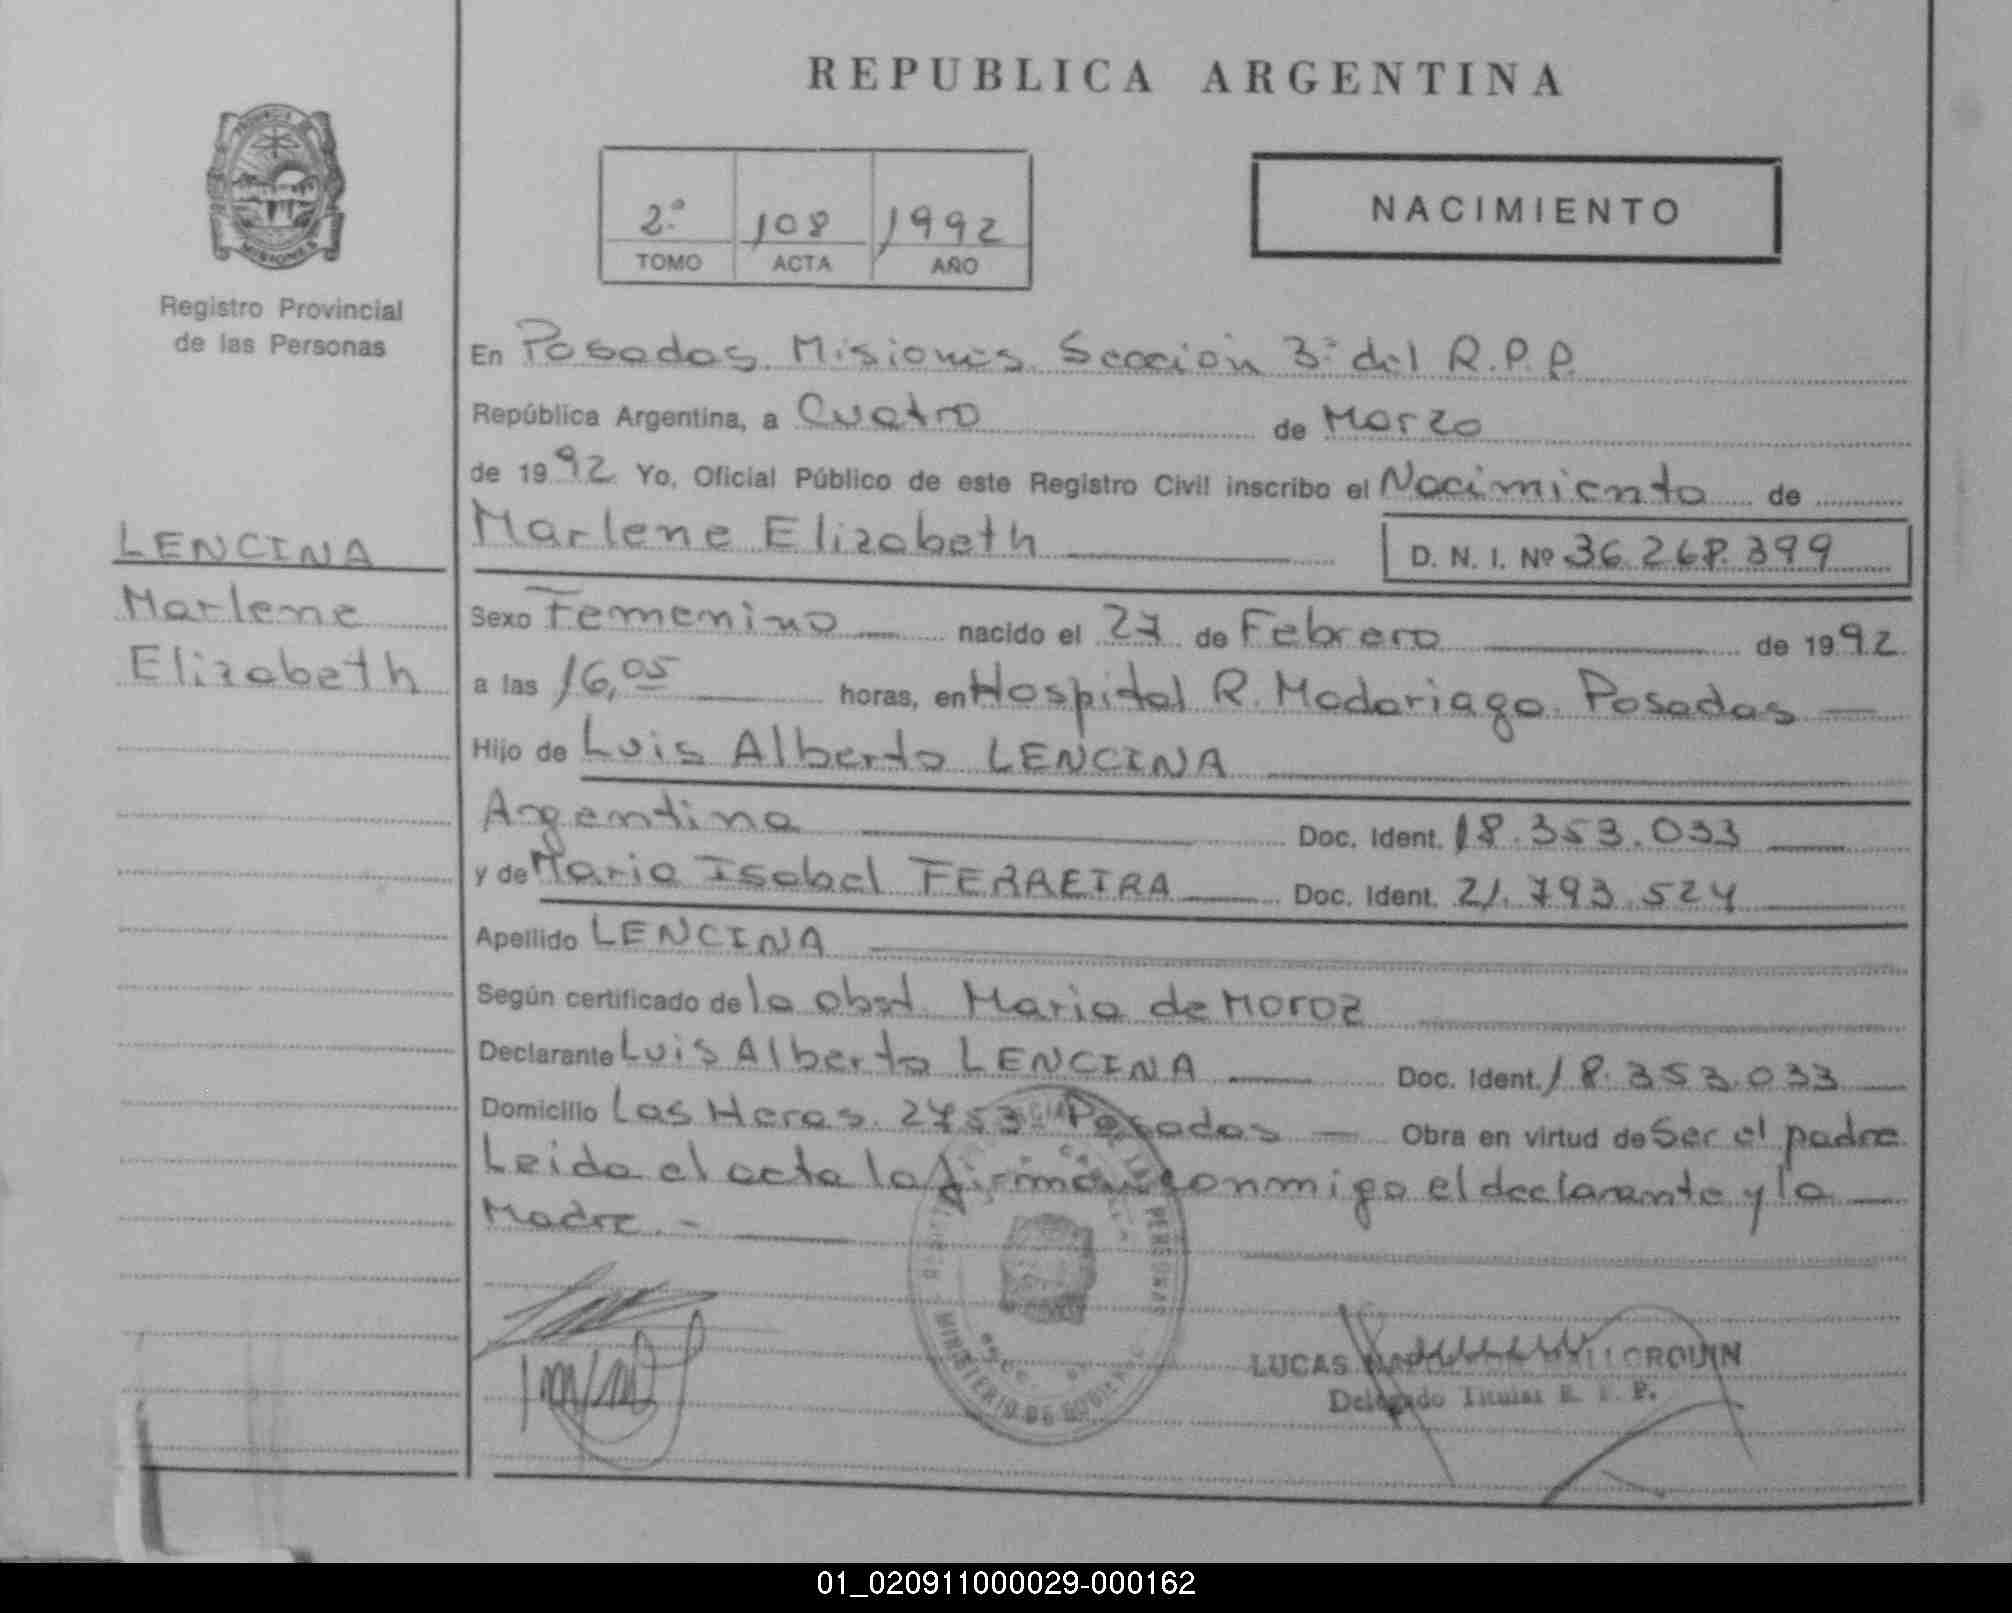 REPUBLICA ARGENTINA
2º 108 1992
TOMO ACTA AÑO
NACIMIENTO
Registro Provincial
de las Personas
LENCINA
Marlene
Elizabeth
En Posadas. Misiones. Sección 3º del R.P.P.
República Argentina, a Cuatro de Marzo
de 1992 Yo, Oficial Público de este Registro Civil inscribo el Nacimiento de
Marlene Elizabeth D. N. I. Nº 36.268.399
Sexo Femenino nacido el 27 de Febrero de 1992
a las 16,05 horas, en Hospital R. Madariaga. Posadas
Hijo de Luis Alberto LENCINA
Argentina Doc. Ident. 18.353.033
y de Maria Isabel FERREIRA Doc. Ident. 21.793.524
Apellido LENCINA
Según certificado de la obst. Maria de Moroz
Declarante Luis Alberto LENCINA Doc. Ident. 18.353.033
Domicilio Las Heras. 2753 Posadas Obra en virtud de Ser el padre
Leida el acta la firman conmigo el declarante y la
Madre.-
MINISTERIO DE GOBIERNO
PERSONAS
LUCAS
Delegado Titular R. P. P.
01_020911000029-000162